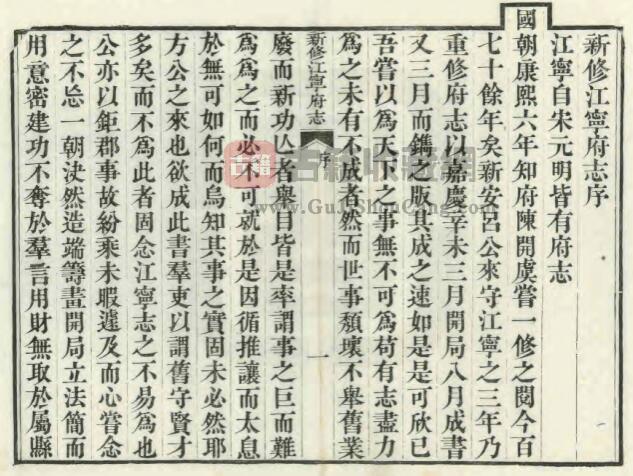 新修江寧府志序
江寧自宋元明皆有府志
國朝康熙六年知府陳開虞嘗一修之閱今百
七十餘年矣新安呂公來守江寧之三年乃
重修府志以嘉慶辛未三月開局八月成書
又三月而鐫之版其成之速如是是可欣已
吾嘗以為天下之事無不可為苟有志盡力
為之未有不成者然而世事頹壞不舉舊業
新修江寧府志 序 一
廢而新功亾者舉目皆是率謂事之巨而難
為為之而必不可就於是因循推讓而太息
於無可如何而烏知其事之實固未必然耶
方公之來也欲成此書羣吏以謂舊守賢才
多矣而不為此者固念江寧志之不易為也
公亦以鉅郡事故紛乘未暇遽及而心嘗念
之不忘一朝決然造端籌畫開局立法簡而
用意密建功不奪於羣言用財無取於屬縣
古籍